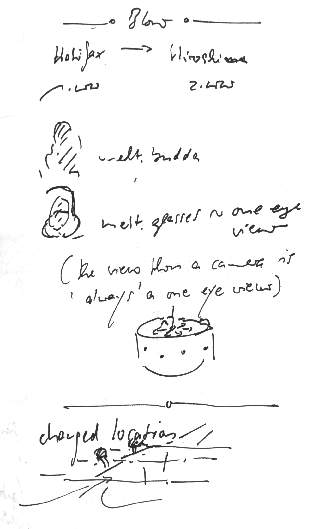 Blow
Halifax → Hiroshima
1.WW 2.WW
melt. budda
melt. glasses ~ one eye
view
(the view from a camera is
'always' a one eye view)
changed location